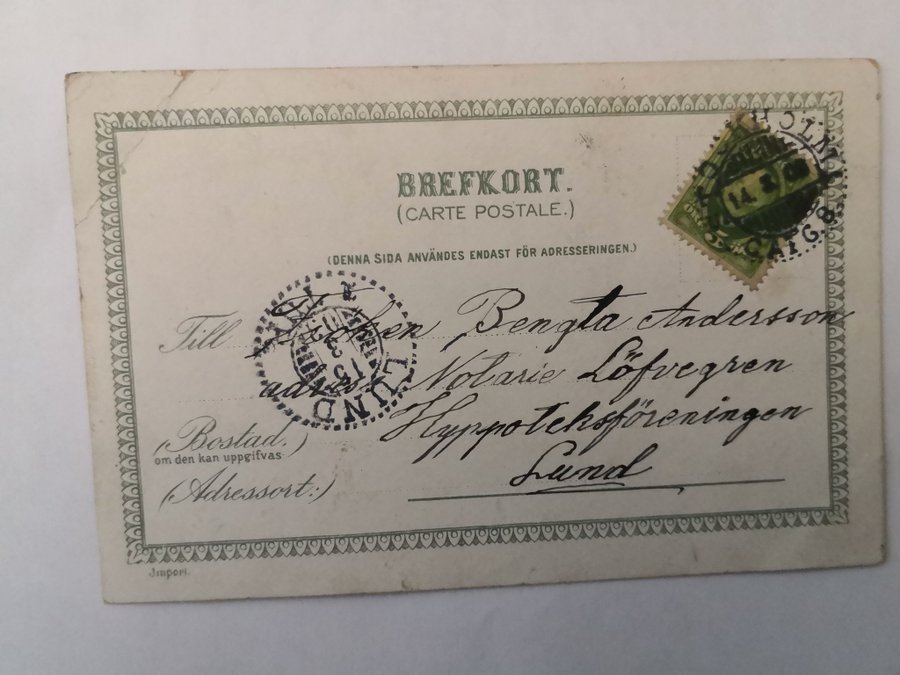 BREFKORT.
(CARTE POSTALE.)
(DENNA SIDA ANVÄNDES ENDAST FÖR ADRESSERINGEN.)
STOCKHOLM
14. 8
Till Fröken Bengta Andersson
adress Notarie Löfvegren
Hyppoteksföreningen
Lund
LUND
15
(Bostad.)
om den kan uppgifvas.
(Adressort:)
Import.